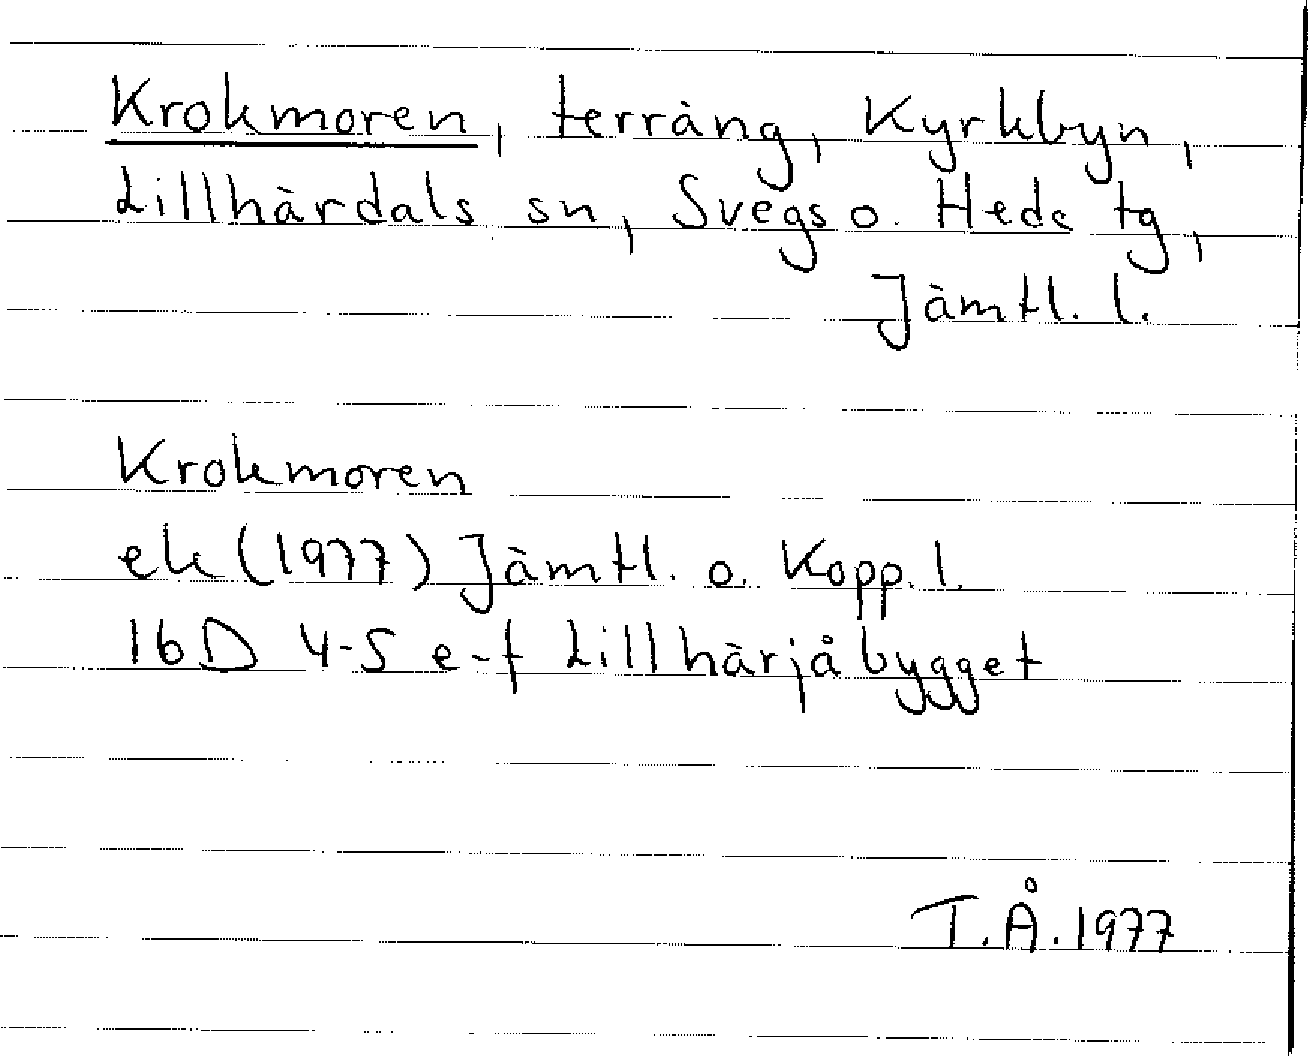 Krokmoren, terräng, Kyrkbyn,
Lillhärdals sn, Svegs o. Hede tg,
Jämtl. l.
Krokmoren
ek (1977) Jämtl. o. Kopp. l.
16D 4-5 e-f Lillhärjåbygget
T.Å. 1977